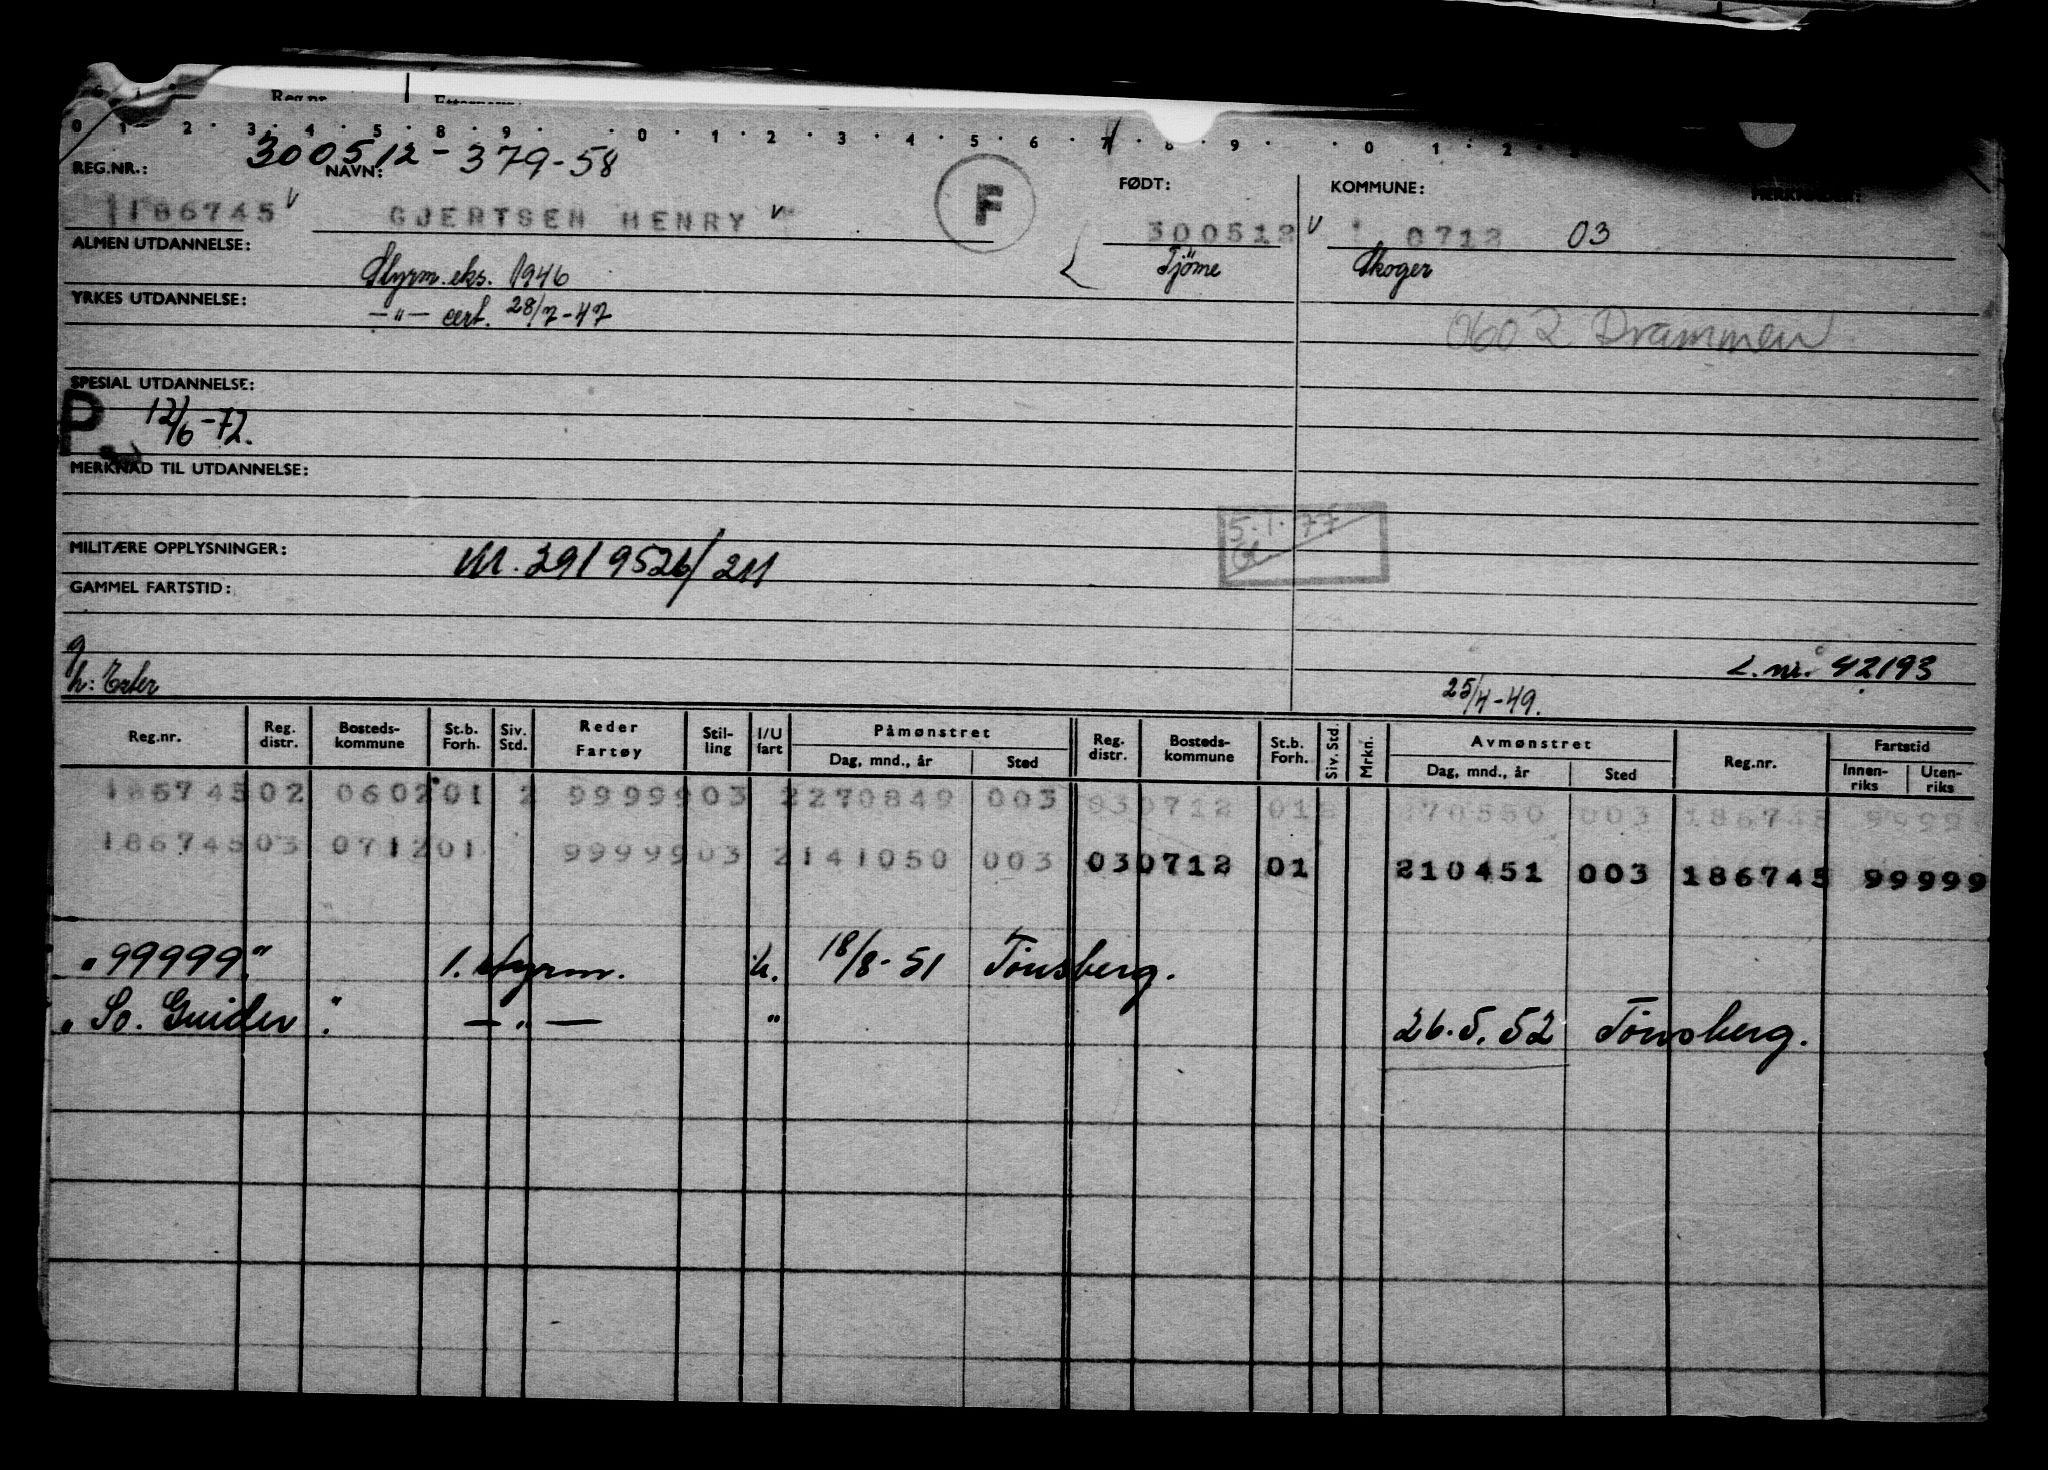 Reg.nr.
0 1 2 3 4 5 8 9 0 1 2 3 4 5 6 7 8 9 0 1 2
300512-379-58
REG.NR.: NAVN: FØDT: KOMMUNE:
186745 v GJERTSEN HENRY v F 300512 v 0712 03
ALMEN UTDANNELSE: Styrm. eks. 1946 Tjöme Skoger
YRKES UTDANNELSE: —"— cert. 28/7-47 0602 Drammen
SPESIAL UTDANNELSE:
P. 12/6-72.
MERKNAD TIL UTDANNELSE:
5.1.77
MILITÆRE OPPLYSNINGER: M. 2919526/211
GAMMEL FARTSTID:
g
h: Exter L. nr. 42193
25/4-49.
Reg.nr. Reg. distr. Bosteds-kommune St.b. Forh. Siv. Std. Reder Fartøy Stil-ling I/U fart Påmønstret Dag, mnd., år Sted Reg. distr. Bosteds-kommune St.b. Forh. Siv. Std. Mrkn. Avmønstret Dag, mnd., år Sted Reg.nr. Fartstid Innen-riks Uten-riks
186745 02 0602 01 2 99999 03 2 270849 003 03 0712 01 270550 003 186745 9999
186745 03 0712 01 99999 03 2 141050 003 03 0712 01 210451 003 186745 99999
"99999" 1. styrm. u. 18/8-51 Tönsberg.
"So. Guider" —"— " 26.5.52 Tönsberg.